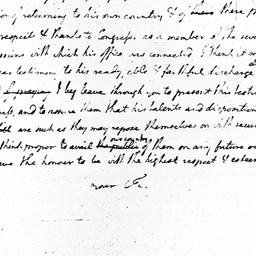 of returning to his own country & of there
respects & thanks to Congress. as a member of the
with which his office was connected I think it
testimony to his ready, able & faithful discharge
I beg leave through you to present this
and to assure them that his talents and disposition
are such as they may repose themselves on with
think proper to avail our country of them on any future
the honour to be with the highest respect & esteem
your &c.